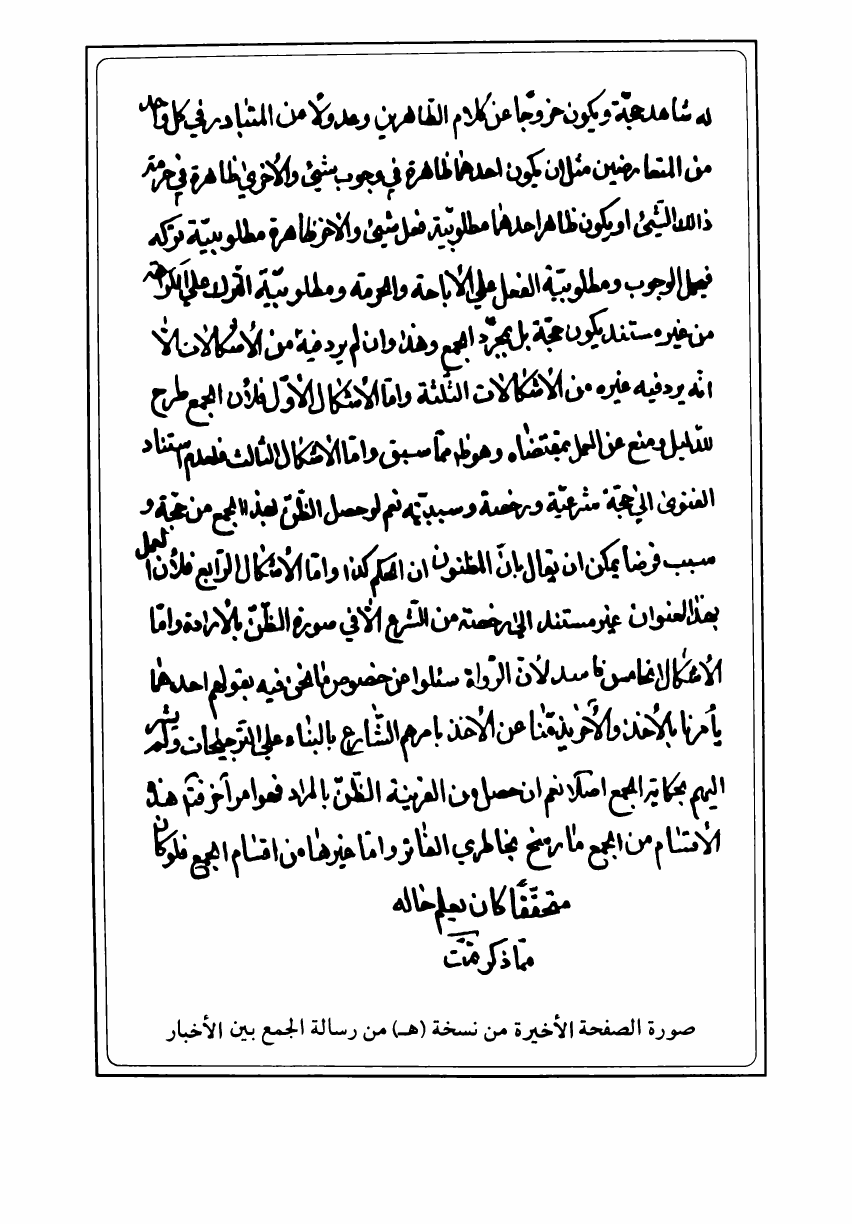 له شاهد حجّة ويكون خروجًا عن كلام الظاهرين وعدولًا من المتبادر في كل واحد
من المتعارضين مثل ان يكون احدهما ظاهرة في وجوب شيئ والأخرى ظاهرة في حرمة
ذالك الشيئ او يكون ظاهر احدهما مطلوبيّة فعل شيئ والأخر ظاهرة مطلوبيّة تركه
فيحمل الوجوب ومطلوبيّة الفعل على الأباحة والحرمة ومطلوبيّة الترك على الكراهة
من غير مستند يكون حجّة بل بمجرّد الجمع وهذا وان لم يرد فيه من الأشكالات الّا
انّه يرد فيه غيره من الأشكالات الثّلثة وامّا الأشكال الأوّل فلأن الجمع طرح
للدليل ومنع عن العمل بمقتضاه وهو ظ ممّا سبق وامّا الأشكال الثالث فلعدم استناد
الفتوى الى حجّة شرعيّة ورخصة وسببيّته نعم لو حصل الظّنّ لهذا الجمع من حجّة و
سبب فرضا يمكن ان يقال بانّ المظنون ان الحكم كذا وامّا الأشكال الرّابع فلأن العمل
بهذا العنوان غير مستند الى رخصته من الشّرع الّا في صورة الظّنّ بالأرادة وامّا
الأشكال الخامس فاسد لأنّ الرّواة سئلوا عن خصوص ما نحن فيه بقولهم احدهما
يأمرنا بالأخذ والأخر ينهانا عن الأخذ بامرهم الشّارع بالبناء على الترجيحات ولم يشر
اليهم بحكاية الجمع اصلًا نعم ان حصل من القرينة الظّنّ بالمراد فهو امر آخر فتمّ هذه
الأقسام من الجمع ما رسخ بخاطري الفاتر وامّا غيرها من اقسام الجمع فلو كان
متحقّقًا كان يعلم حاله
ممّا ذكر تمّت
صورة الصفحة الأخيرة من نسخة (هـ) من رسالة الجمع بين الأخبار